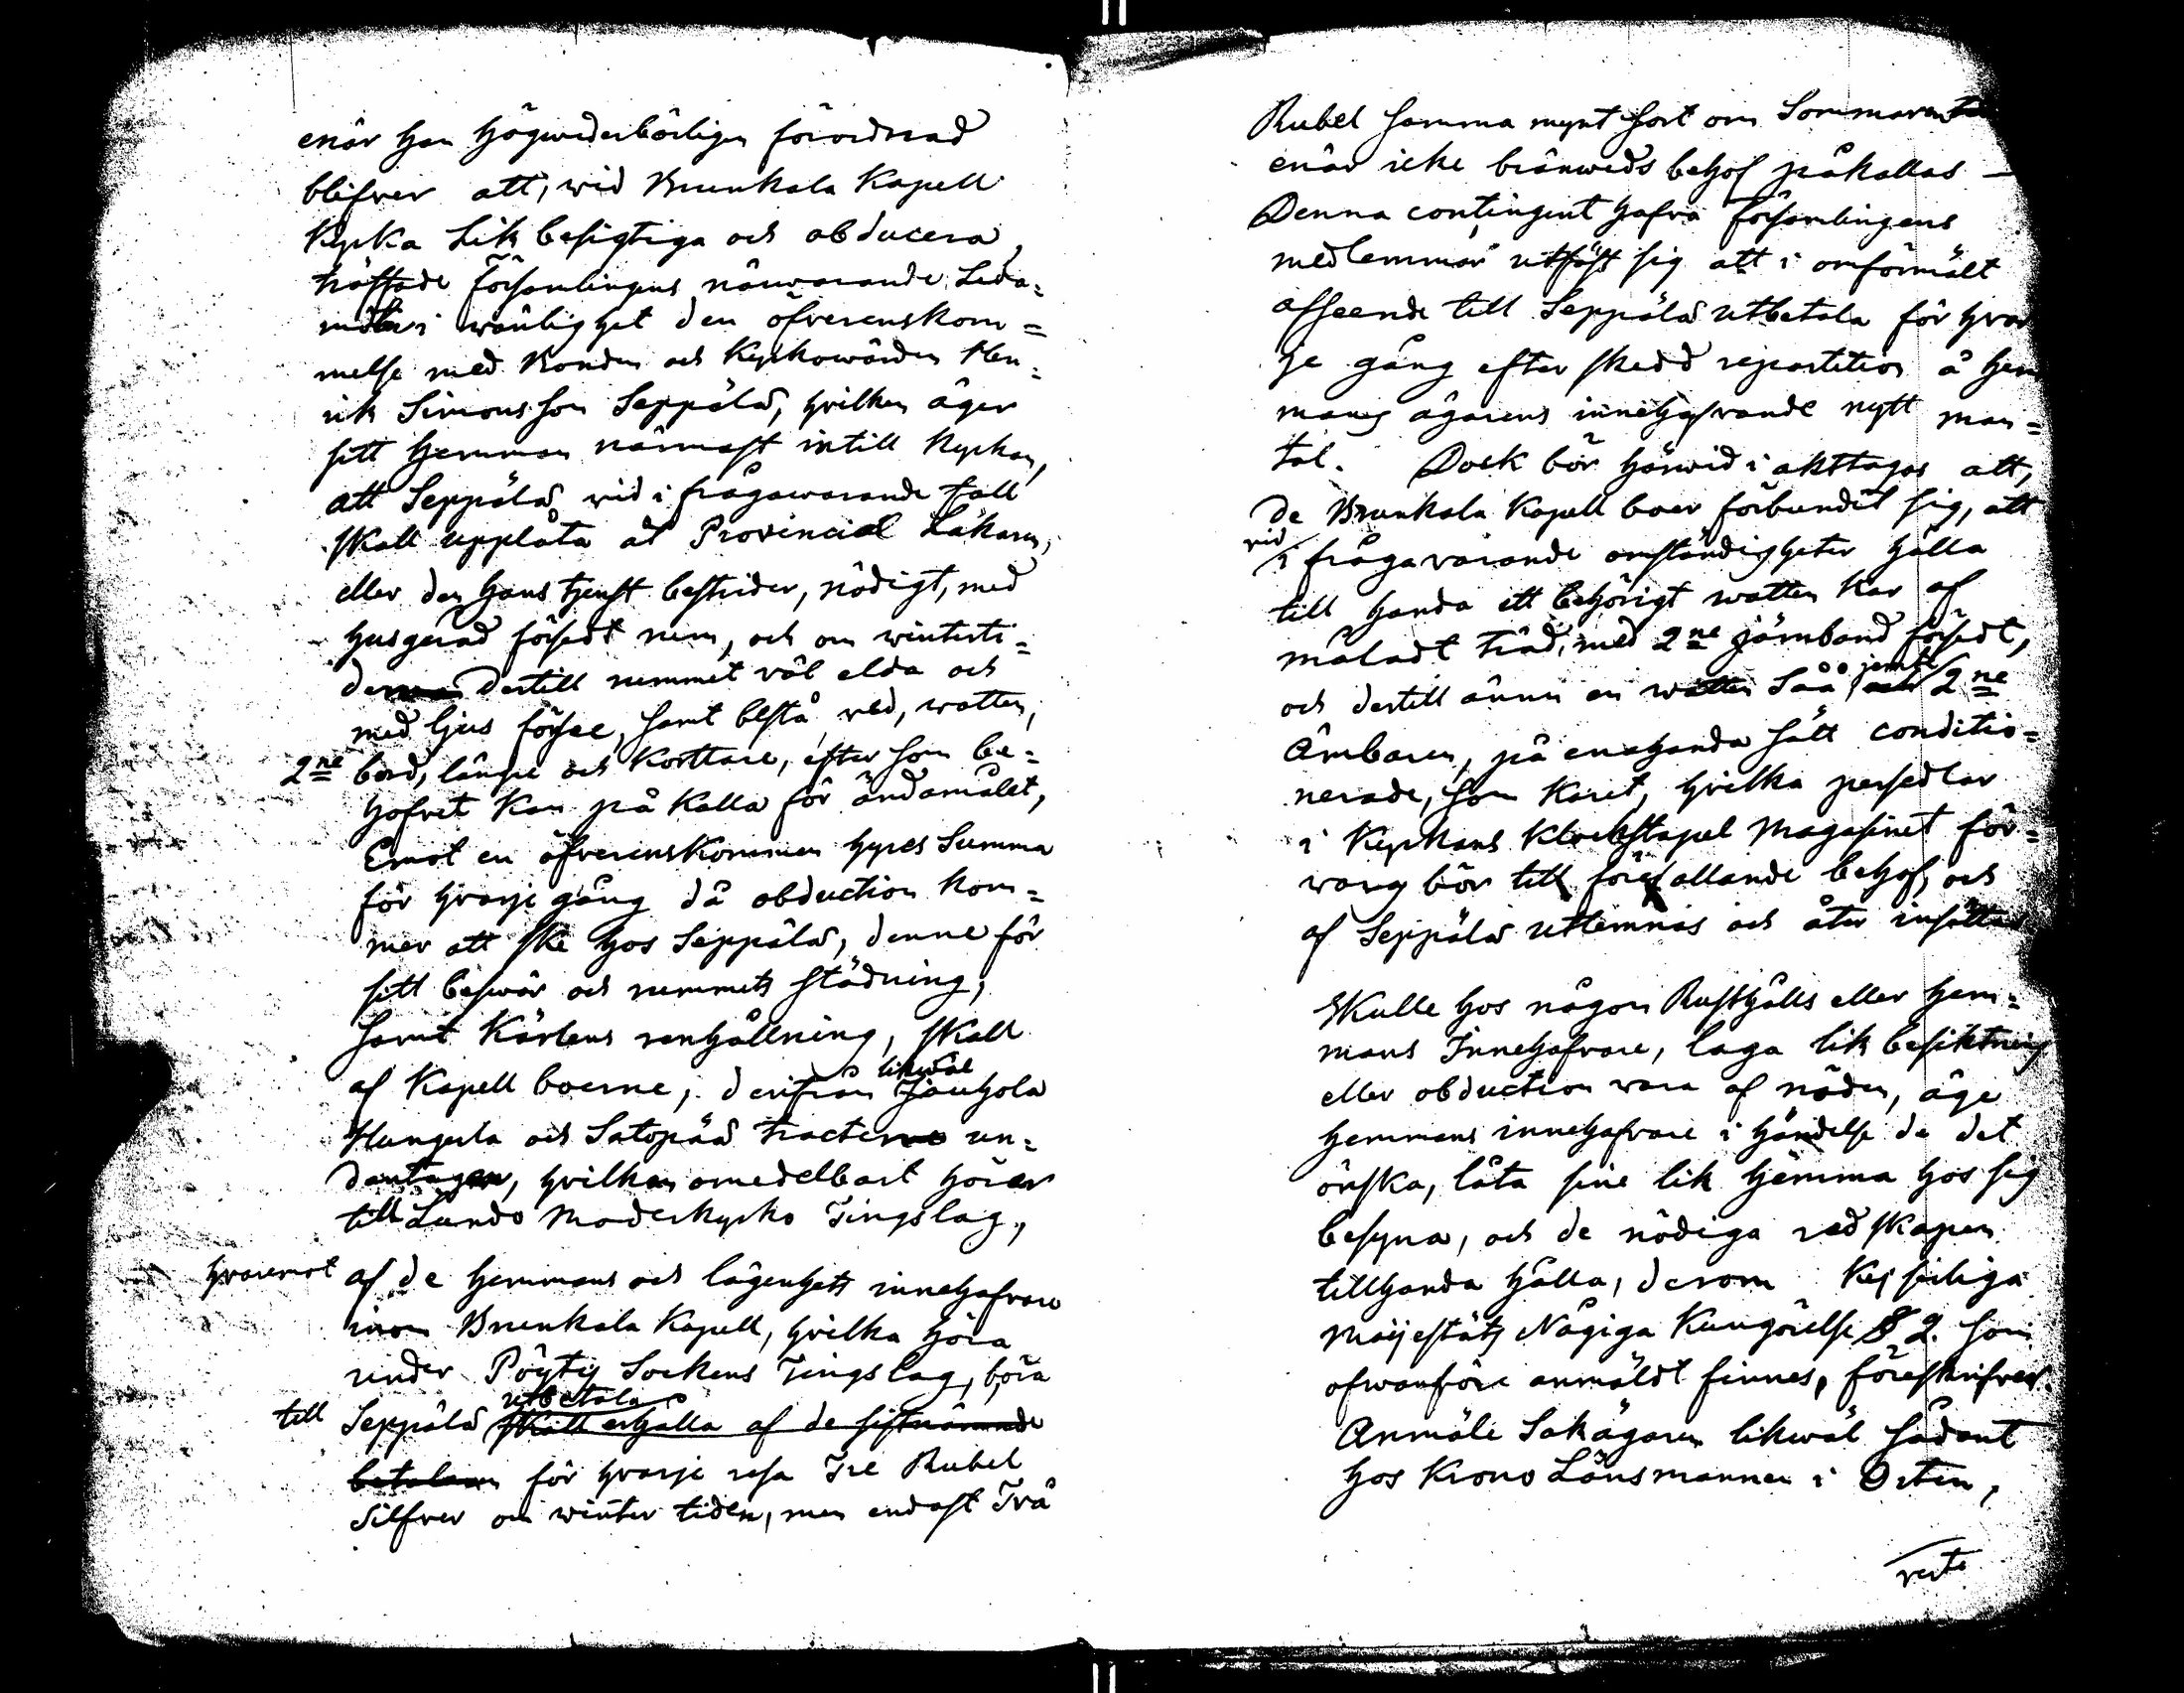 enär han högwederbörligen förordnad
blifver att, wid Brunkala Kapell
Kyrka Lik besigtiga och obducera,
träffade Församlingens närwarande Leda=
möter i wänlighet den öfverenskom=
melse med Bonden och Kyrkowärden Hen=
rik Simonsson Seppälä, hvilken äger
sitt hemman närmast intill Kyrkan,
att Seppälä wid i frågawarande fall
skall upplåta åt Provincial Läkaren,
eller den hans tjenst bestrider, nödigt, med
husgeråd försedt rum, och om winterti=
den dertill rummet väl elda och
med ljus förse, samt bestå ved, watten,
2ne bord, längre och kortare, efter som be=
hofvet kan på kalla för ändamålet,
Emot en öfverenskommen hyres Summa
för hvarje gång då obduction kom=
mer att ske hos Seppälä, denne för
sitt beswär och rummets städning,
samt Kärlens renhållning, skall
af Kapell boerne, derifrån likwäl Jäuhola
Hungerla och Satopää tracterne un=
dantagen, hvilken omedelbart hörer
till Lundo Moderkyrko Tingslag,
hvaremot af de hemmans och lägenhets innehafvare
inom Brunkala Kapell, hvilka höra
under Pöytis Sockens Tingslag, böra
till Seppälä utbetala skall erhålla af de sistnämnde
betalam för hvarje resa Tre Rubel
Silfver om winter tiden, men endast Två
Rubel samma mynt sort om Sommaren
enär icke bränweds behof påkallas —
Denna contingent hafva Församlingens
medlemmar utfäst sig att i omförmält
afseende till Seppälä utbetala för hvar
je gång efter skedd repartition å hem
mans ägarens innehafvande nytt man=
tal. Dock bör härwid i akttagas att,
de Brunkala Kapell boer förbundit sig, att
vid i frågavarande omständigheter hålla
till handa ett behörigt watten Kar af
måladt träd, med 2ne järnband försedt,
och dertill ännu en watten Såå jemte och 2ne
Ämbaren, på enahanda sätt conditio=
nerade, som Karet, hvilka persedlar
i Kyrkans Klockstapel Magasinet för=
varas bör till förefallande behof, och
af Seppälä utlemnas och åter insättas
Skulle hos någon Rusthålls eller hem=
mans Innehafvare, laga lik besiktning
eller obduction vara af nöden, äge
hemmans innehafvare i händelse de det
önska, låta sine lik hemma hos sig
besyna, och de nödiga redskapen
tillhanda hålla, derom Kejserliga
Maijestäts Nådiga Kungörelse § 2. som
ofwanföre anmäldt finnes, föreskrifver.
Anmäle Sakägaren likwäl sådant
hos Krono Länsmannen i Orten,
verte